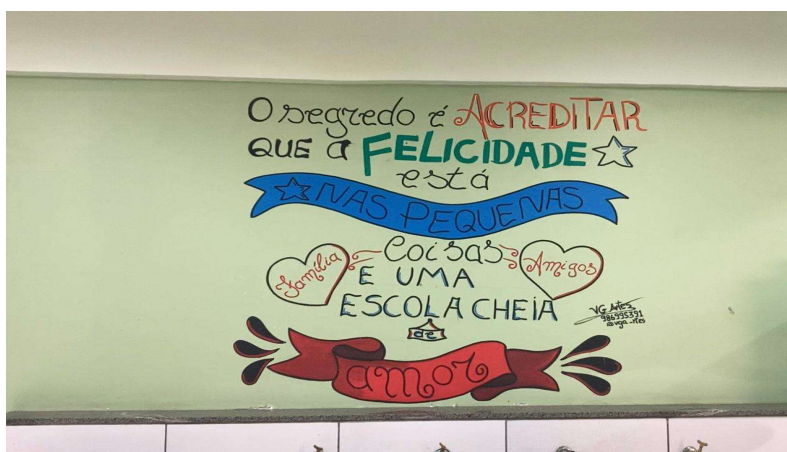 O segredo é ACREDITAR
QUE a FELICIDADE
está
NAS PEQUENAS
Coisas
Família
Amigos
E UMA
ESCOLA CHEIA
de
amor
VG Artes
986995391
@vga_rtes